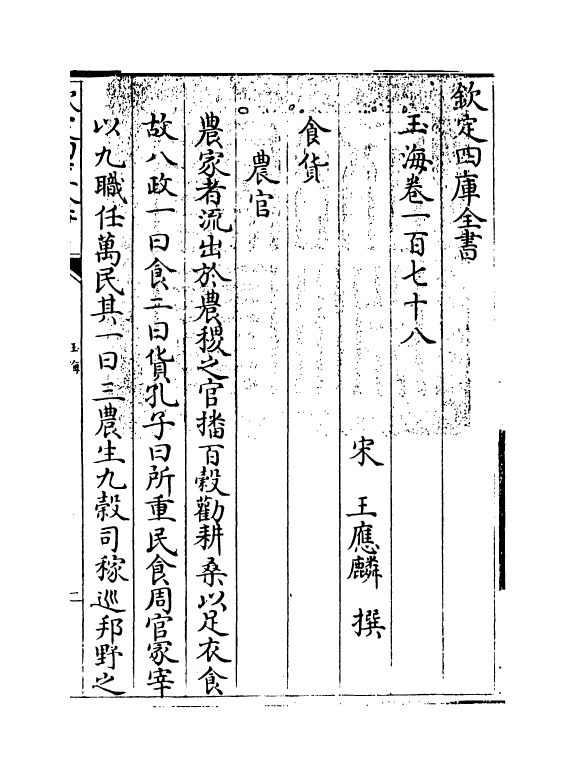 欽定四庫全書
玉海卷一百七十八
宋 王應麟 撰
食貨
農官
農家者流出於農稷之官播百穀勸耕桑以足衣食
故八政一曰食二曰貨孔子曰所重民食周官冢宰
以九職任萬民其一曰三農生九穀司稼巡邦野之
玉海